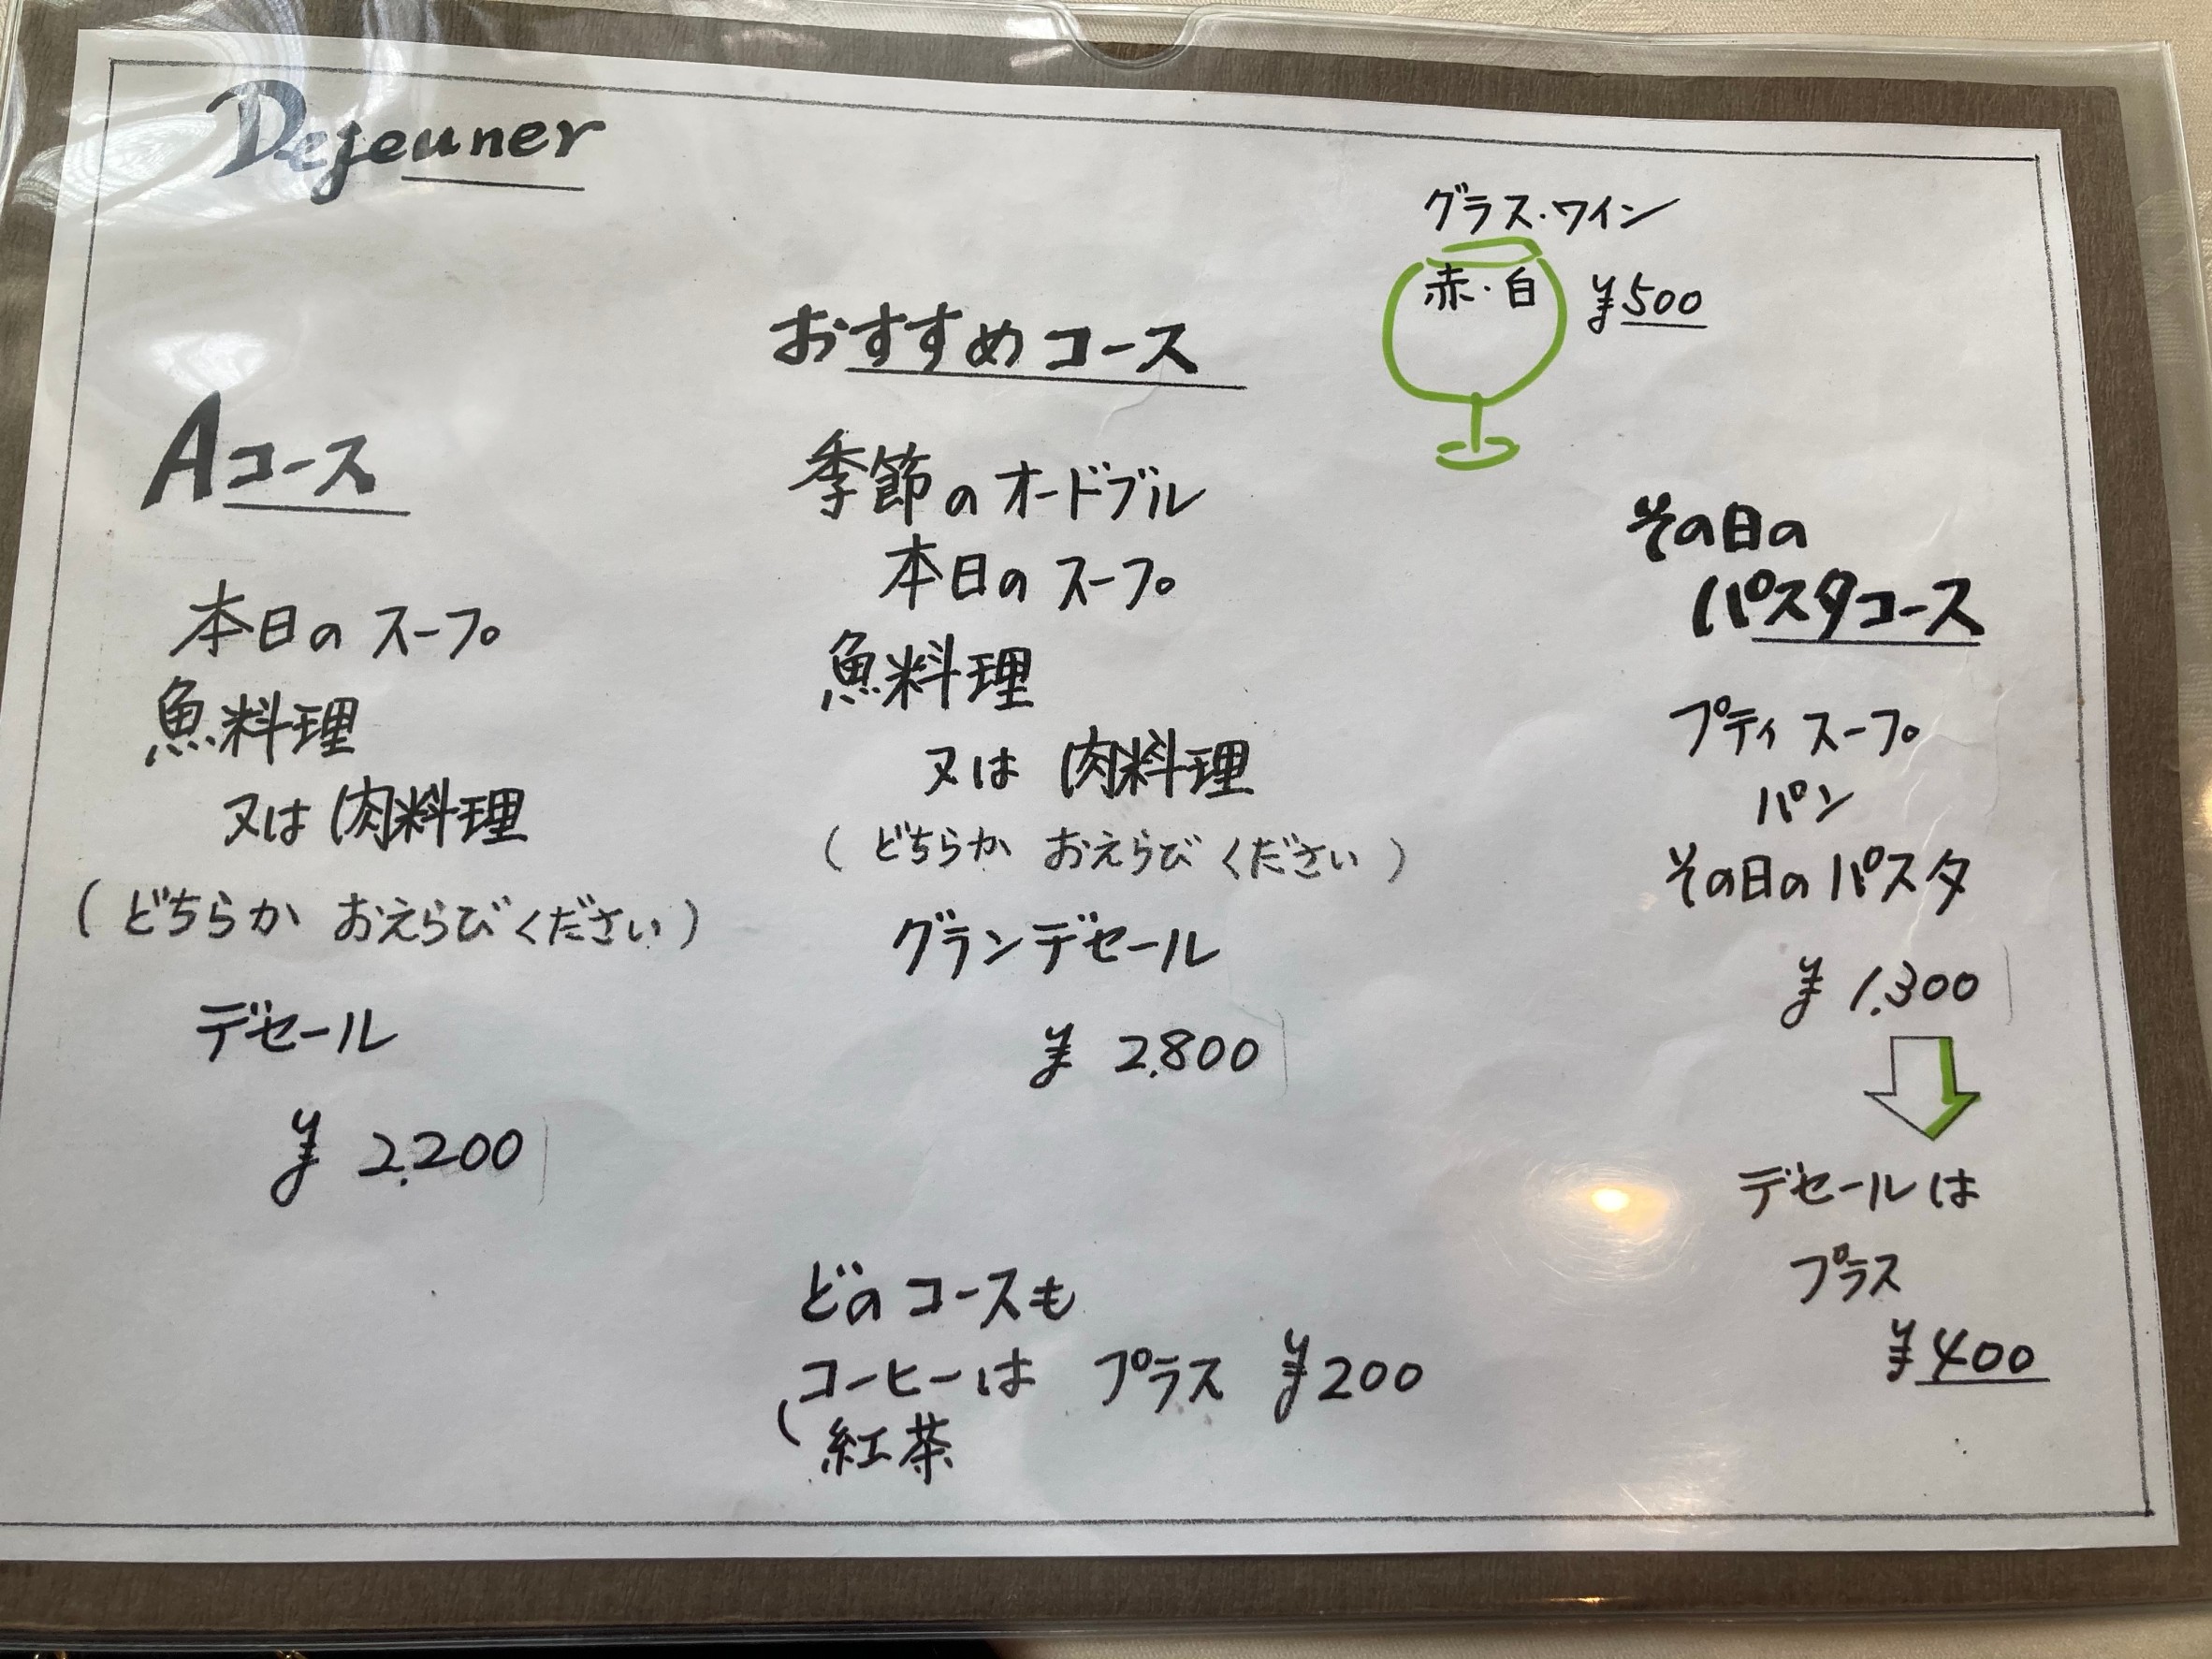 Dejeuner
グラス・ワイン
赤・白 ¥500
Aコース
本日のスープ
魚料理
又は肉料理
(どちらか おえらびください)
デセール
¥2,200
おすすめコース
季節のオードブル
本日のスープ
魚料理
又は 肉料理
(どちらか おえらびください)
グランデセール
¥2,800
その日の
パスタコース
プティスープ
パン
その日のパスタ
¥1,300
デセールは
プラス
¥400
どのコースも
コーヒーは プラス ¥200
紅茶